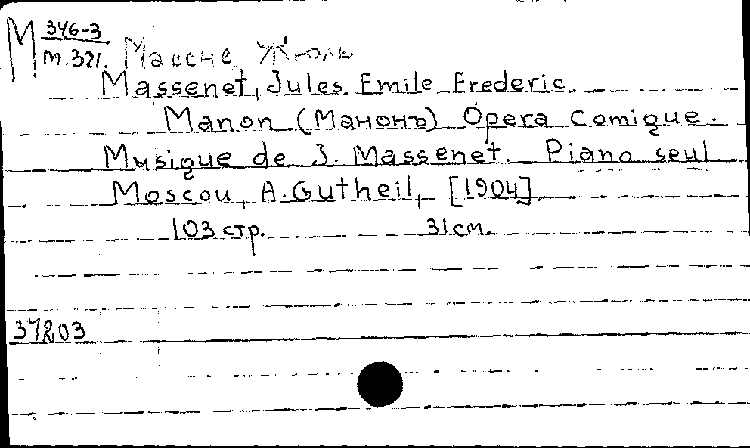 М 346-3
т.321. Массне Жюль
Massenet, Jules Emile Frederic
Manon (Манонъ) Opera Comique.
Musique de J. Massenet. Piano seul
Moscou, A. Gutheil, [1904]
103 стр. 31 см.
37203